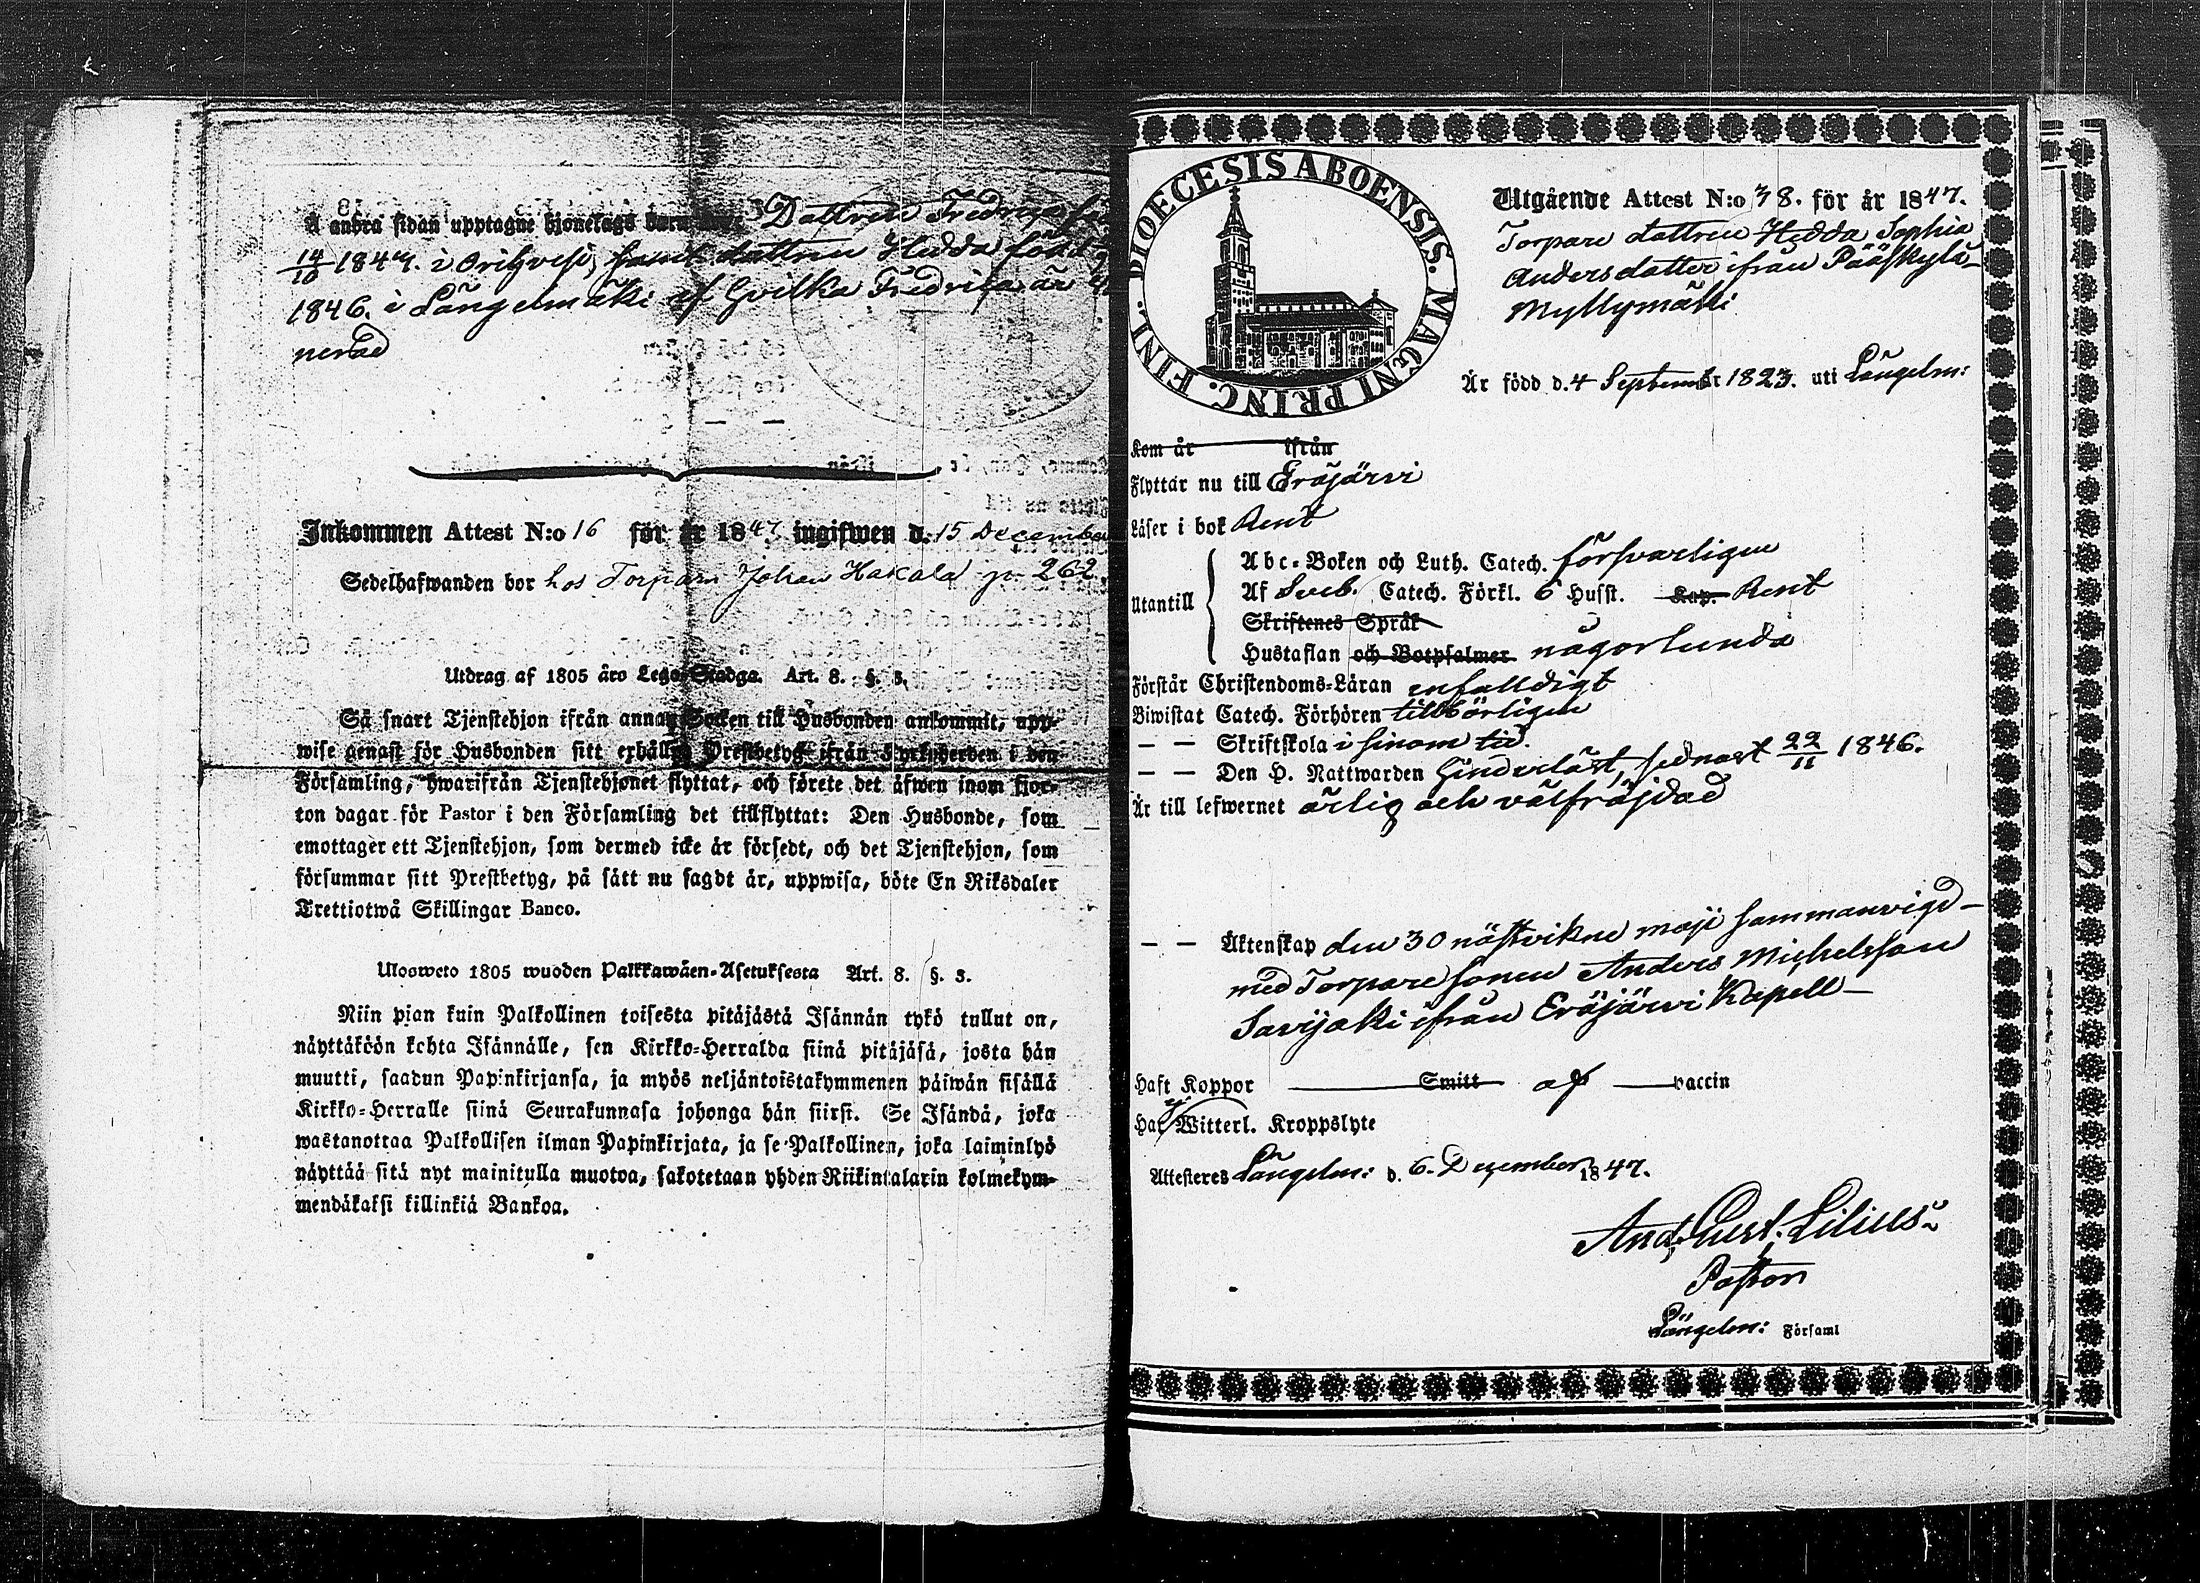 Å andra sidan upptagne hjonelags barn äro: Dattren Fredrika född
14/10 1847. i Orihvesi, samt dattren Hedda född
1846. i Längelmäki af hvilka Fredrika är
nerad
Inkommen Attest N:o 16 för år 1847 ingifwen d. 15 December
Sedelhafwanden bor hos Torparn Johan Hakala p. 262.
Utdrag af 1805 års Lego-Stadga. Art. 8. §. 3.
Så snart Tjenstehjon ifrån annan Socken till Husbonden ankommit, upp-
wise genast för Husbonden sitt erhållna Prestbetyg ifrån Kyrkoherden i den
Församling, hwarifrån Tjenstehjonet flyttat, och förete det äfwen inom fjor-
ton dagar för Pastor i den Församling det tillflyttat: Den Husbonde, som
emottager ett Tjenstehjon, som dermed icke är försedt, och det Tjenstehjon, som
försummar sitt Prestbetyg, på sätt nu sagdt är, uppwisa, böte En Riksdaler
Trettiotwå Skillingar Banco.
Ulosweto 1805 wuoden Palkkawäen-Asetuksesta Art. 8. §. 3.
Niin pian kuin Palkollinen toisesta pitäjästä Isännän tykö tullut on,
näyttäköön kohta Isännälle, sen Kirkko-Herralda siinä pitäjäsä, josta hän
muutti, saadun Papinkirjansa, ja myös neljäntoistakymmenen päiwän sisällä
Kirkko-Herralle siinä Seurakunnasa johonga hän siirsi. Se Isändä, joka
wastanottaa Palkollisen ilman Papinkirjata, ja se Palkollinen, joka laiminlyö
näyttää sitä nyt mainitulla muotoa, sakotetaan yhden Riikintalarin kolmekym-
mendäkaksi killinkiä Bankoa.
DIOECESIS ABOENSIS. MAGNI PRINC. FINL.
Utgående Attest N:o 38. för år 1847.
Torpare dattren Hedda Sophia
Andersdatter ifrån Pääskylä
Myllymäki
Är född d. 4 September 1823. uti Längelm:
Kom år ifrån
Flyttar nu till Eräjärvi
Läser i bok Rent
Utantill
Abc-Boken och Luth. Catech. försvarligen
Af Sveb. Catech. Förkl. 6 Hufst. Kap. Rent
Skriftenes Språk
Hustaflan och Botpsalmer någorlunda
Förstår Christendoms-Läran enfaldigt
Biwistat Catech. Förhören tillbörligen
— — Skriftskola i sinom tid.
— — Den H. Nattwarden hinderlöst, sednast 22/11 1846.
Är till lefwernet ärlig och välfräjdad
— — Äktenskap den 30 nästvikne maji sammanvigd
med Torpare sonen Anders Michelsson
Savijoki ifrån Eräjärvi Kapell
Haft Koppor Smitt af vaccin
Har ej Witterl. Kroppslyte
Attesteres Längelm: d. 6. December 1847.
And. Gust. Lilius
Pastor
Längelm: Församl